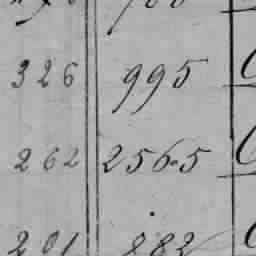 326 995
262 2565
201 882